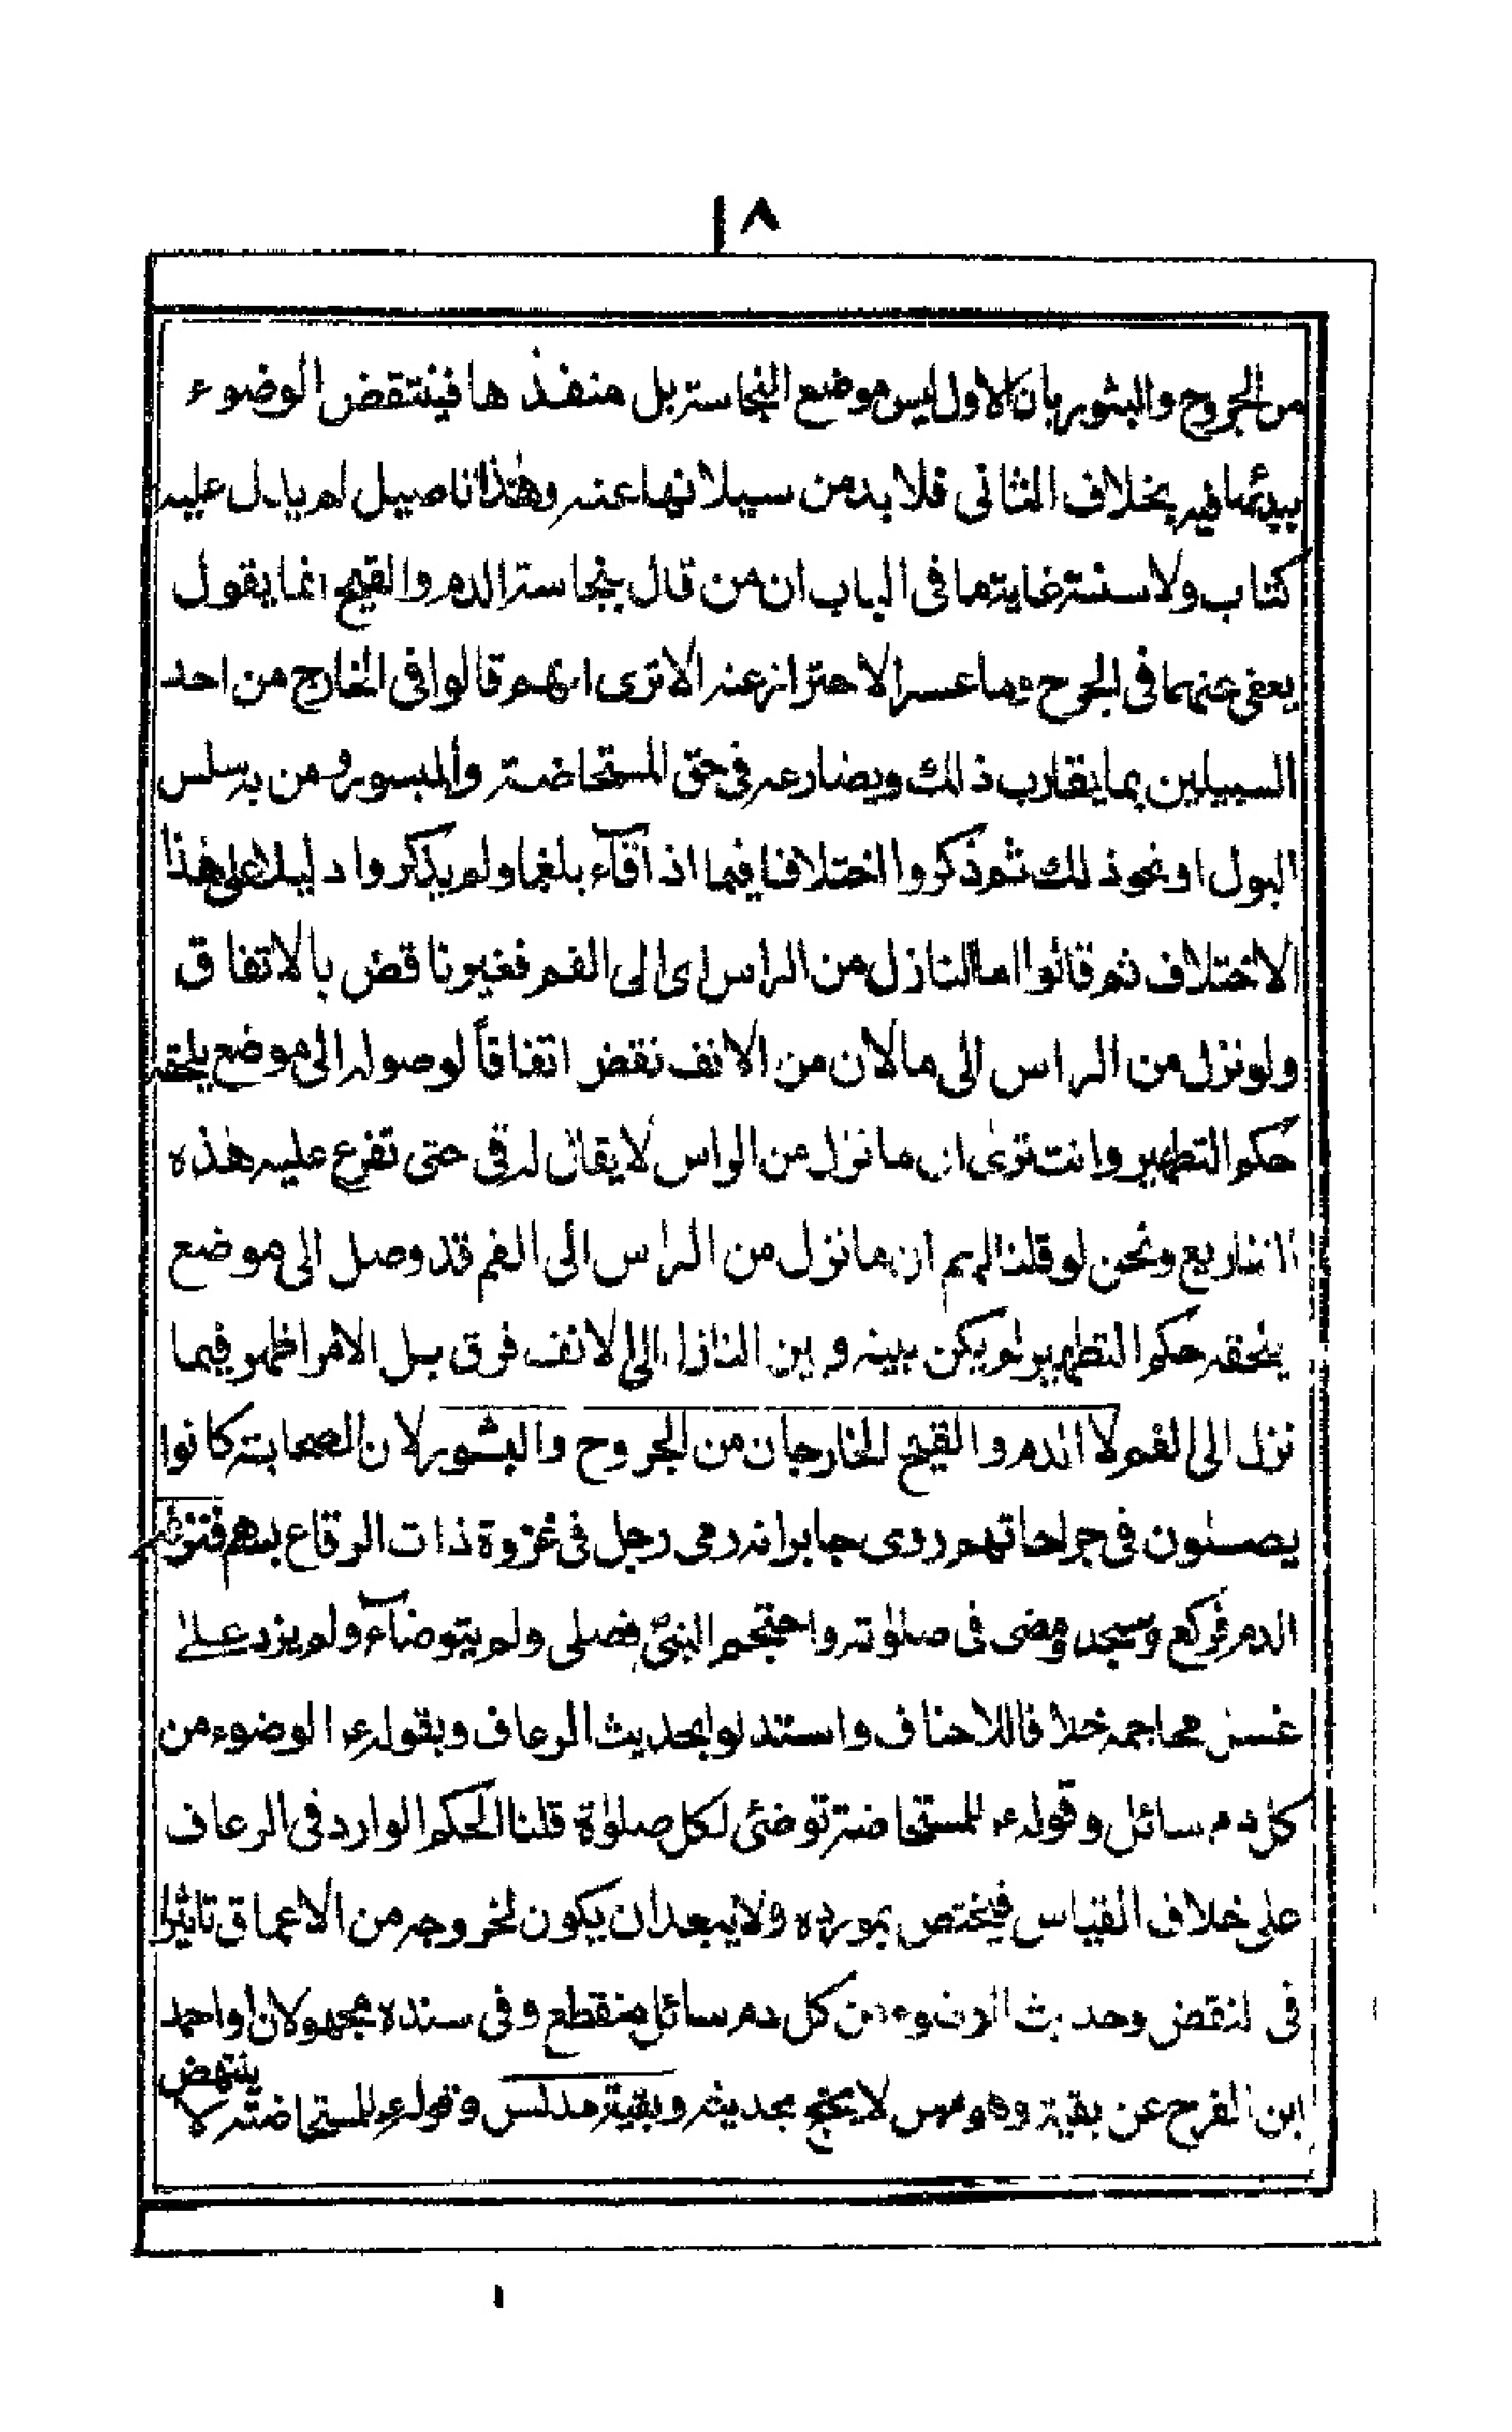 ١٨
من الجروح والبثور بان الاول ليس موضع النجاسة بل منفذ ها فينتقض الوضوء
بخلاف الثانى فلا بد من سيلانها عنه وهذا تاصيل لم يدل عليه
كتاب ولا سنة غاية ما فى الباب ان من قال بنجاسة الدم والقيح انما يقول
يعفى عنهما فى الجرح وما عسر الاحتراز عنه الا ترى انهم قالوا فى الخارج من احد
السبيلين بما يقارب ذلك ويضارعه فى حق المستحاضة والمبسور ومن به سلس
البول او نحو ذلك ثم ذكروا اختلافا فيما اذا قآء بلغما ولم يذكروا دليلا على هذا
الاختلاف ثم قالوا اما النازل من الراس اى الى الفم فغير ناقض بالاتفاق
ولو نزل من الراس الى مالان من الانف نقض اتفاقاً لوصوله الى موضع يلحقه
حكم التطهير وانت ترى ان ما نزل من الراس لا يقال له قئ حتى تفرع عليه هذه
التفاريع ونحن لو قلنا لهم ان ما نزل من الراس الى الفم قد وصل الى موضع
يلحقه حكم التطهير لم يكن بينه و بين النازل الى الانف فرق بل الامر اظهر فيما
نزل الى الفم لا الدم والقيح الخارجان من الجروح والبثور لان الصحابة كانوا
يصلون فى جراحاتهم روى جابر انه رمى رجل فى غزوة ذات الرقاع بسهم فنزفه
الدم فركع وسجد ومضى فى صلوٰته واحتجم النبى فصلى ولم يتوضآء ولم يزد على
غسل محاجمه خلافا للاحناف واستدلوا بحديث الرعاف وبقوله ء الوضوء من
كل دم سائل وقوله ء للمستحاضة توضئى لكل صلوٰة قلنا الحكم الوارد فى الرعاف
على خلاف القياس فيختص بمورده ولا يبعد ان يكون لخروجه من الاعماق تاثيرا
فى النقض وحديث الوضوء من كل دم سائل منقطع وفى سنده مجهولان او احمد
ابن الفرح عن بقية وهو ممن لا يحتج بحديثه وبقية مدلس وقوله ء للمستحاضة لا
ينتهض